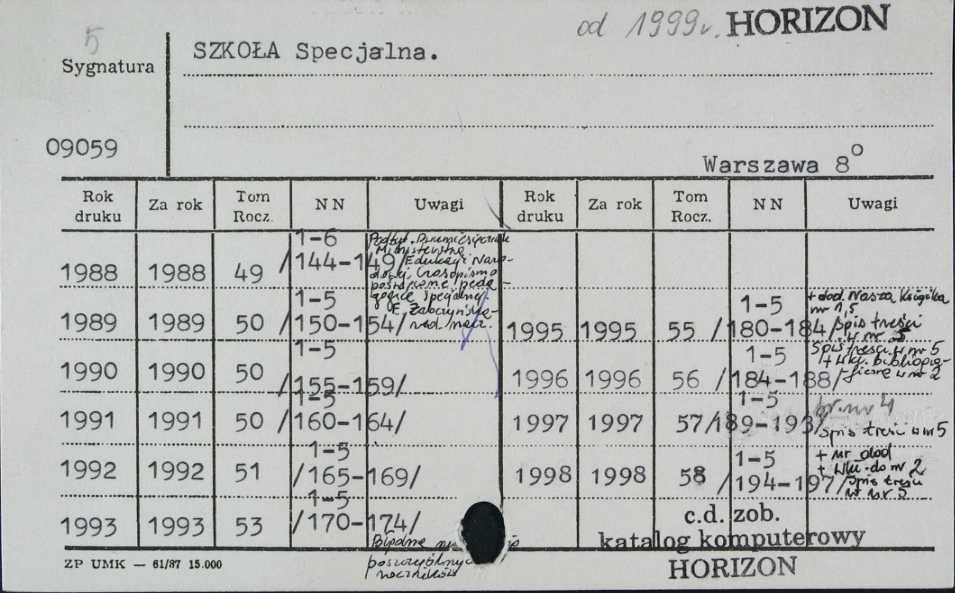 5 od 1999r. HORIZON
SZKOŁA Specjalna.
Sygnatura
09059
Warszawa 8°
Rok druku Za rok Tom Rocz. NN Uwagi Rok druku Za rok Tom Rocz. NN Uwagi
1988 1988 49 1-6 /144-149/ Podtyt. Dwumiesięcznik
Ministerstwa
Edukacji Naro-
dowej. Czasopismo
poświęcone peda-
gogice specjalnej
1989 1989 50 1-5 /150-154/ 1995 1995 55 1-5 /180-184/ + dod. Nasza Książka
nr 1,5
Spis treści
w nr 5
1990 1990 50 1-5 /155-159/ 1996 1996 56 1-5 /184-188/ Spis treści w nr 5
1991 1991 50 1-5 /160-164/ 1997 1997 57 1-5 /189-193/ br. nr 4
Spis treści w nr 5
1992 1992 51 1-5 /165-169/ 1998 1998 58 1-5 /194-197/ + nr dod
+ wkł. do nr 2
Spis treści
w nr 5
1993 1993 53 1-5 /170-174/
poszczególnych
roczników
c.d. zob.
katalog komputerowy
HORIZON
ZP UMK — 61/87 15.000